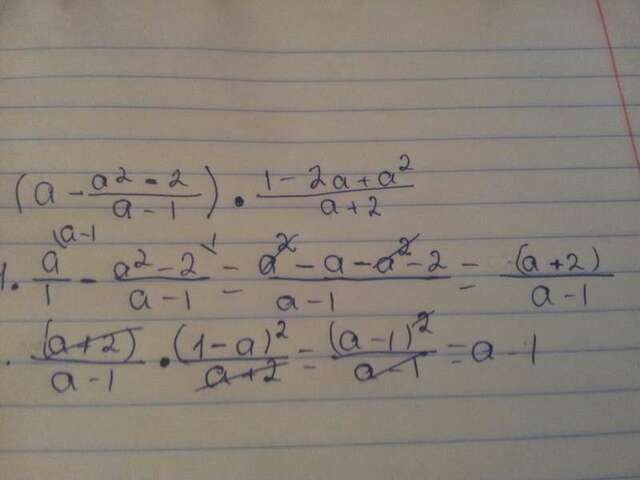 (a - a² - 2 / a - 1) · 1 - 2a + a² / a + 2
1. a / 1 (a-1 - a² - 2 / a - 1 \1 = a² - a - a² - 2 / a - 1 = (a + 2) / a - 1
. (a + 2) / a - 1 · (1 - a)² / a + 2 = (a - 1)² / a - 1 = a - 1